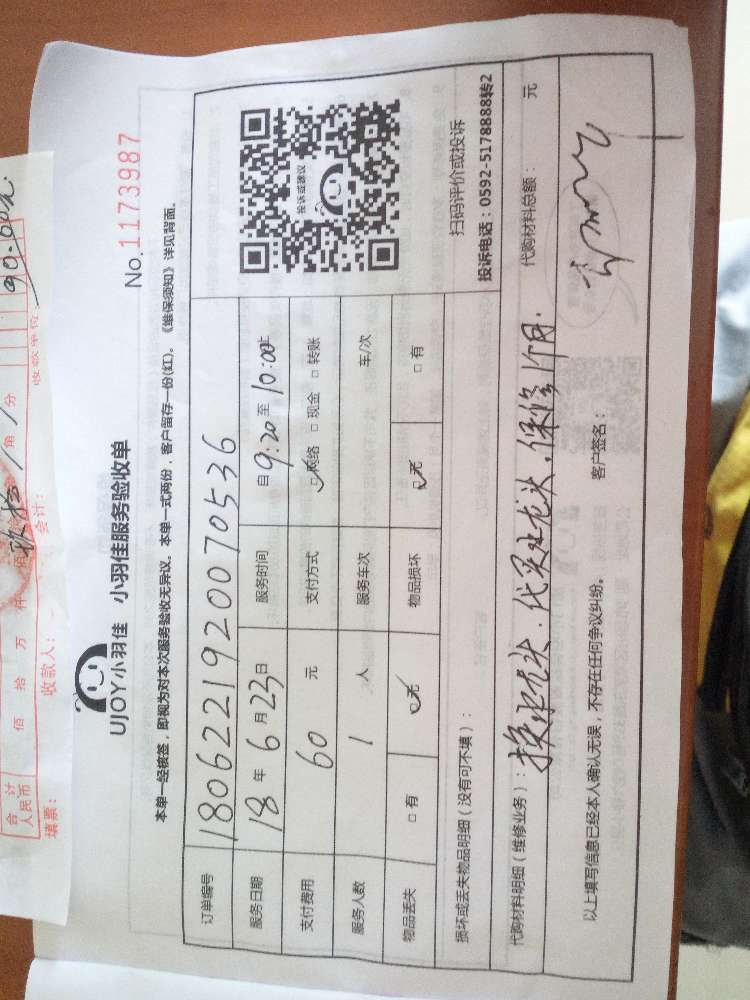 合计
人民币
佰 拾 万 仟 佰 玖拾 / 角 / 分
90.00元
填票：
收款人：
会计：
收款单位
UJOY小羽佳 小羽佳服务验收单
No.1173987
本单一经核签，即视为对本次服务验收无异议。本单一式两份，客户留存一份(红)。《维保须知》详见背面。
订单编号 180622192007053​6
服务日期 18年6月23日 服务时间 自9:20至10:00止
支付费用 60 元 支付方式 ☑网络 □现金 □转账
服务人数 1 人 服务车次 车/次
物品丢失 □有 ☑无 物品损坏 ☑无 □有
投诉或建议
扫码评价或投诉
投诉电话：0592-5178888转2
损坏或丢失物品明细（没有可不填）：
代购材料明细（维修业务）：换水龙头.代买水龙头.保修1个月.
代购材料总额： 元
以上填写信息已经本人确认无误，不存在任何争议纠纷。
客户签名：